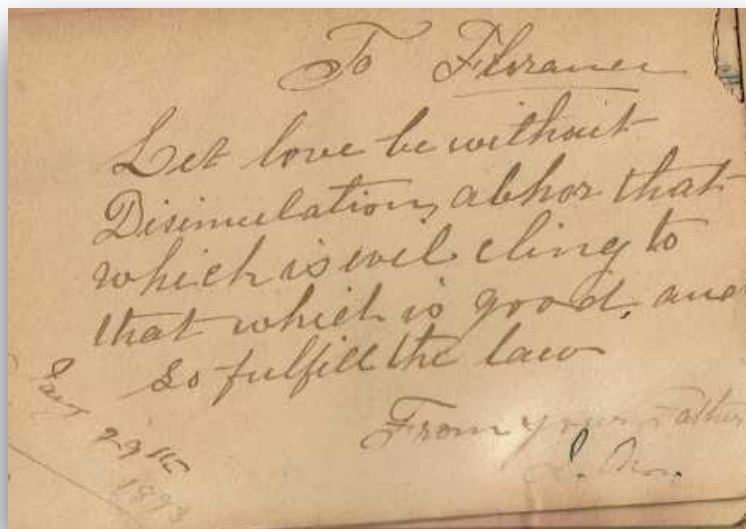 To Florance
Let love be without
Disimulation, abhor that
which is evil cling to
that which is good, and
so fulfill the law
From your Father
Jany 29th
1893